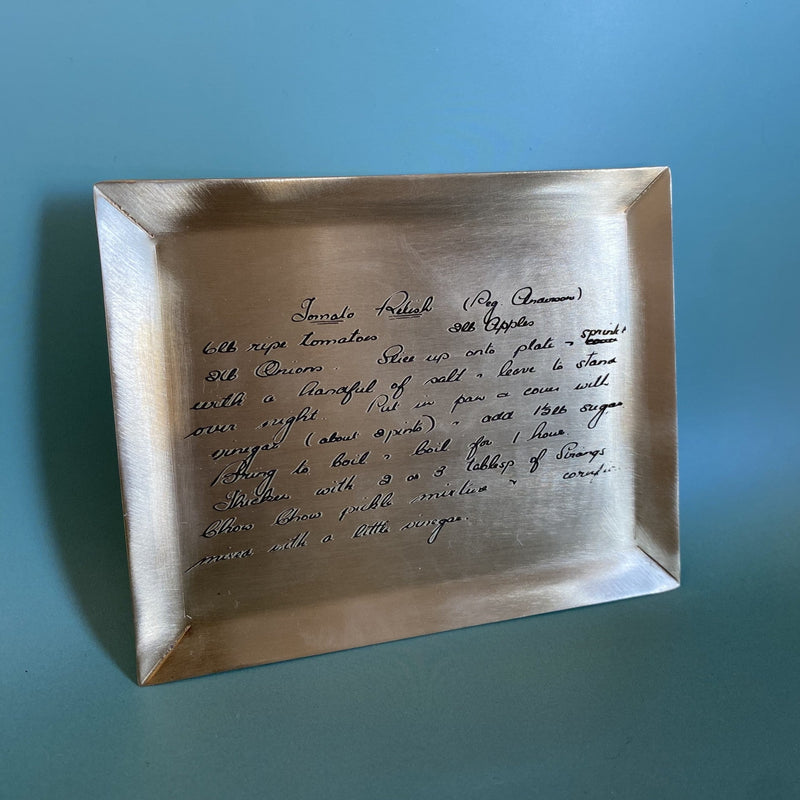 Tomato Relish (Peg. Anderson)
6lb ripe tomatoes 2lb Apples
2lb Onions. Slice up onto plate & sprinkle
with a handful of salt & leave to stand
over night. Put in pan & cover with
vinegar (about 2 pints) & add 1½lb sugar
Bring to boil & boil for 1 hour.
Thicken with 2 or 3 tablesp of
Chow Chow pickle mixture &
mixed with a little vinegar.